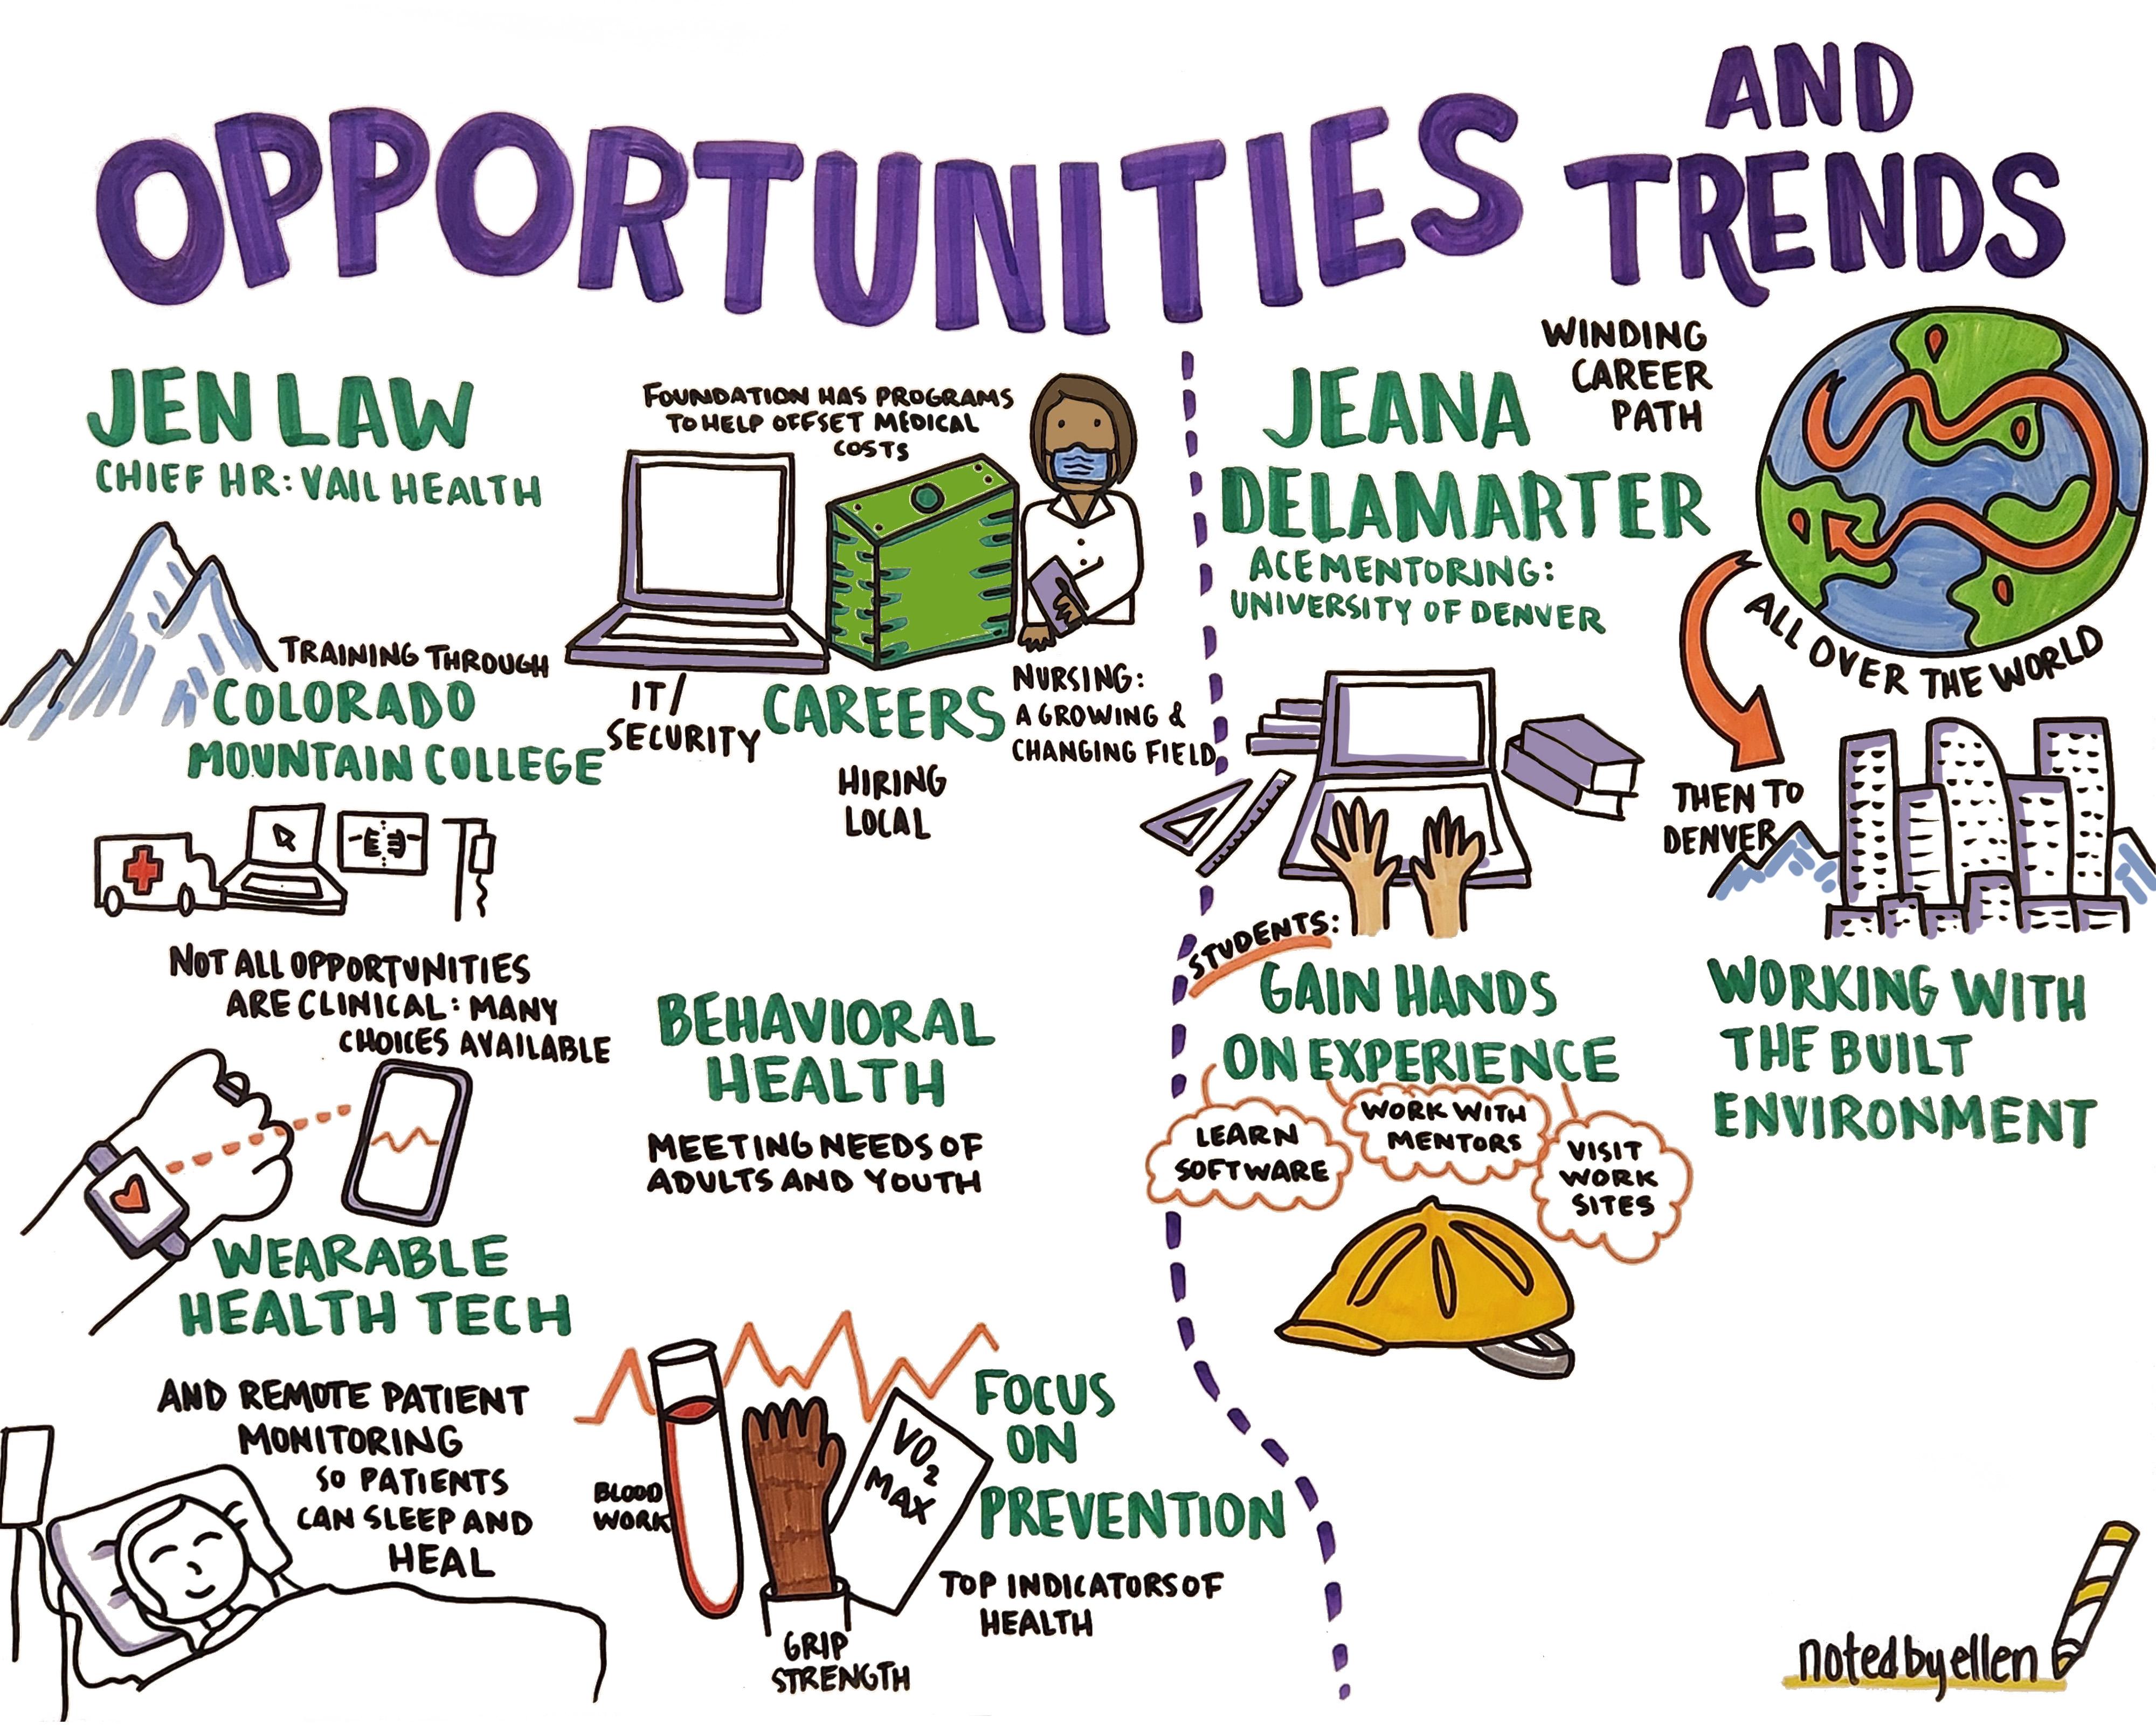 OPPORTUNITIES
AND
TRENDS
JEN LAW
CHIEF HR: VAIL HEALTH
TRAINING THROUGH
COLORADO
MOUNTAIN COLLEGE
NOT ALL OPPORTUNITIES
ARE CLINICAL: MANY
CHOICES AVAILABLE
WEARABLE
HEALTH TECH
AND REMOTE PATIENT
MONITORING
SO PATIENTS
CAN SLEEP AND
HEAL
FOUNDATION HAS PROGRAMS
TO HELP OFFSET MEDICAL
COSTS
IT/
SECURITY
CAREERS
HIRING
LOCAL
NURSING:
A GROWING &
CHANGING FIELD
BEHAVIORAL
HEALTH
MEETING NEEDS OF
ADULTS AND YOUTH
BLOOD
WORK
GRIP
STRENGTH
VO2
MAX
FOCUS
ON
PREVENTION
TOP INDICATORS OF
HEALTH
JEANA
DELAMARTER
ACE MENTORING:
UNIVERSITY OF DENVER
WINDING
CAREER
PATH
ALL OVER THE WORLD
THEN TO
DENVER
STUDENTS:
GAIN HANDS
ON EXPERIENCE
LEARN
SOFTWARE
WORK WITH
MENTORS
VISIT
WORK
SITES
WORKING WITH
THE BUILT
ENVIRONMENT
notedbyellen